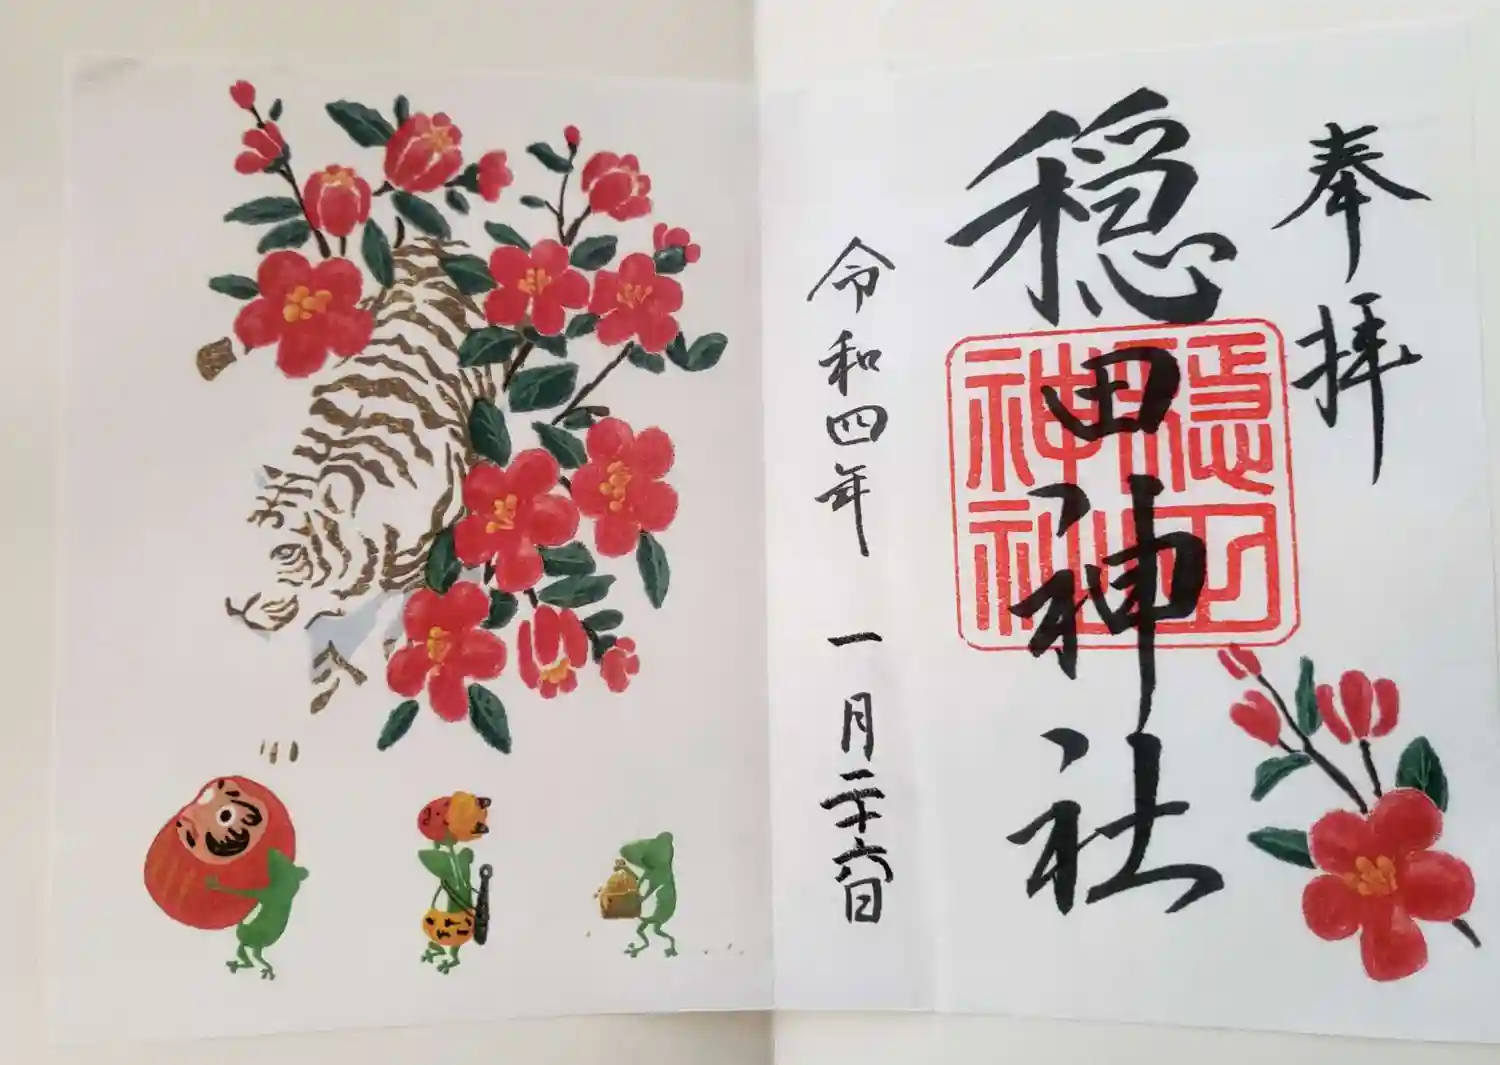 奉拝
穏田神社
穏田
神社
令和四年 一月二十六日